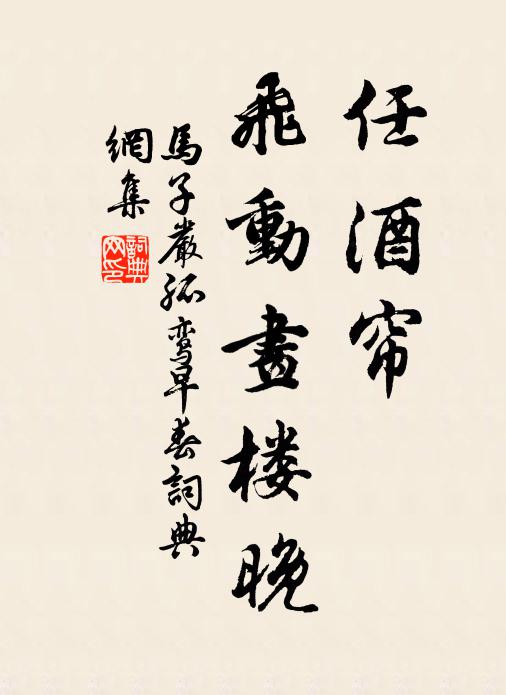 任酒帘
飛動畫楼晚
馬子嚴孤鸾早春詞典
網集
詞典网印